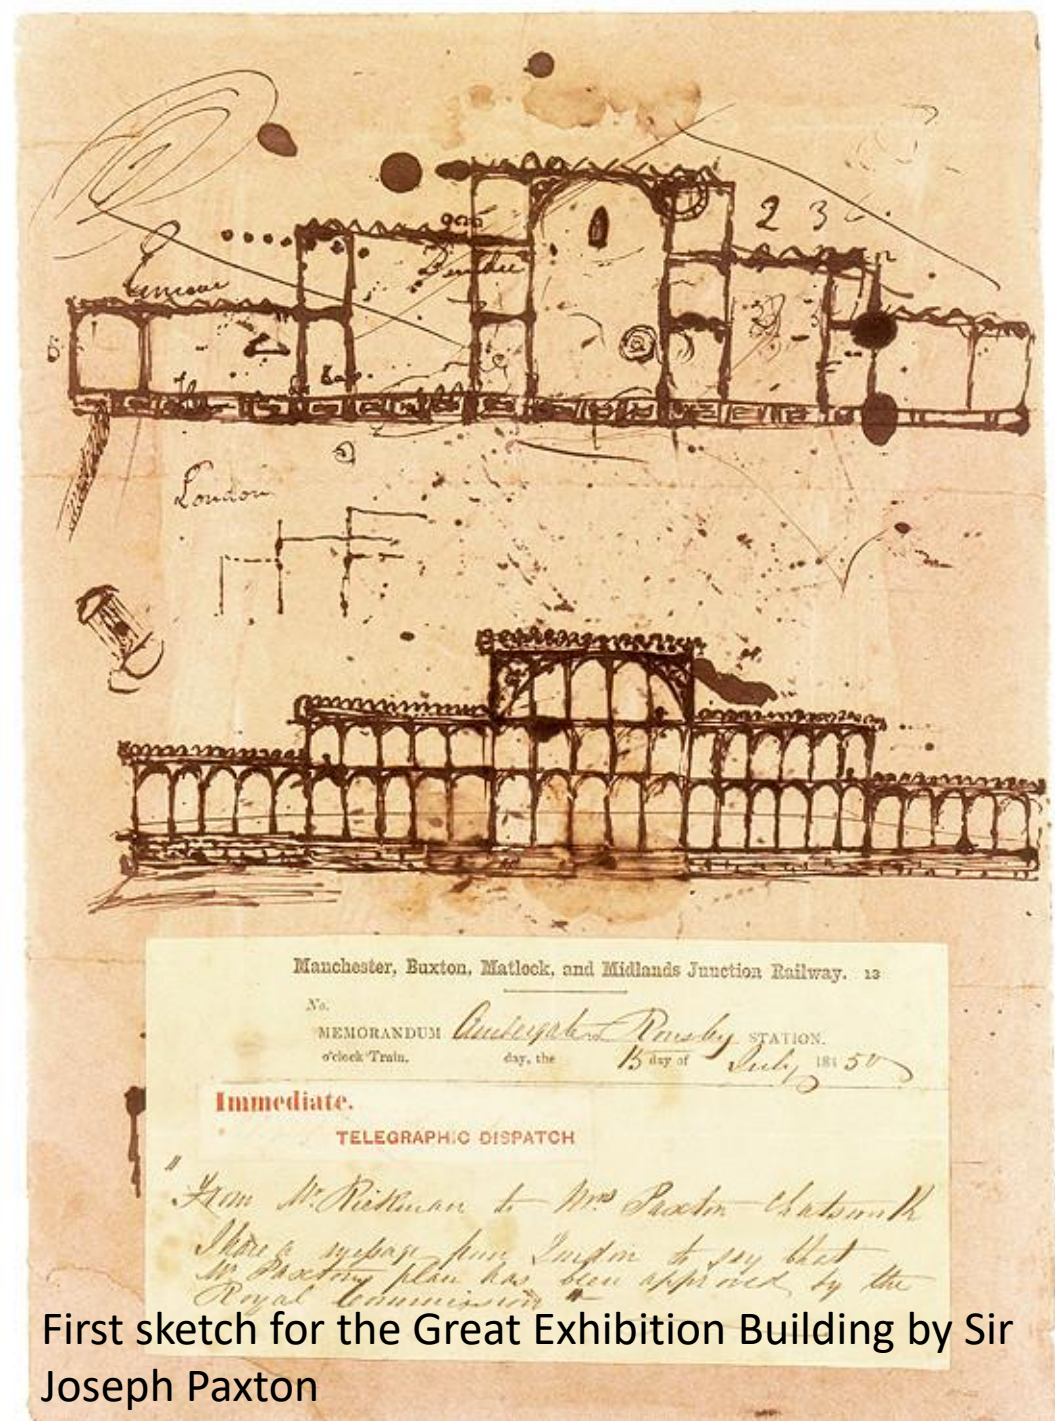 2 3
London
Manchester, Buxton, Matlock, and Midlands Junction Railway. 13
No.
MEMORANDUM Ambergate & Rowsley STATION.
o'clock Train. day, the 15 day of July 184 50
Immediate.
TELEGRAPHIC DISPATCH
"From Mr Rickman to Mrs Paxton Chatsworth
I have a message from London to say that
Mr Paxtons plan has been approved by the
Royal Commission"
First sketch for the Great Exhibition Building by Sir
Joseph Paxton